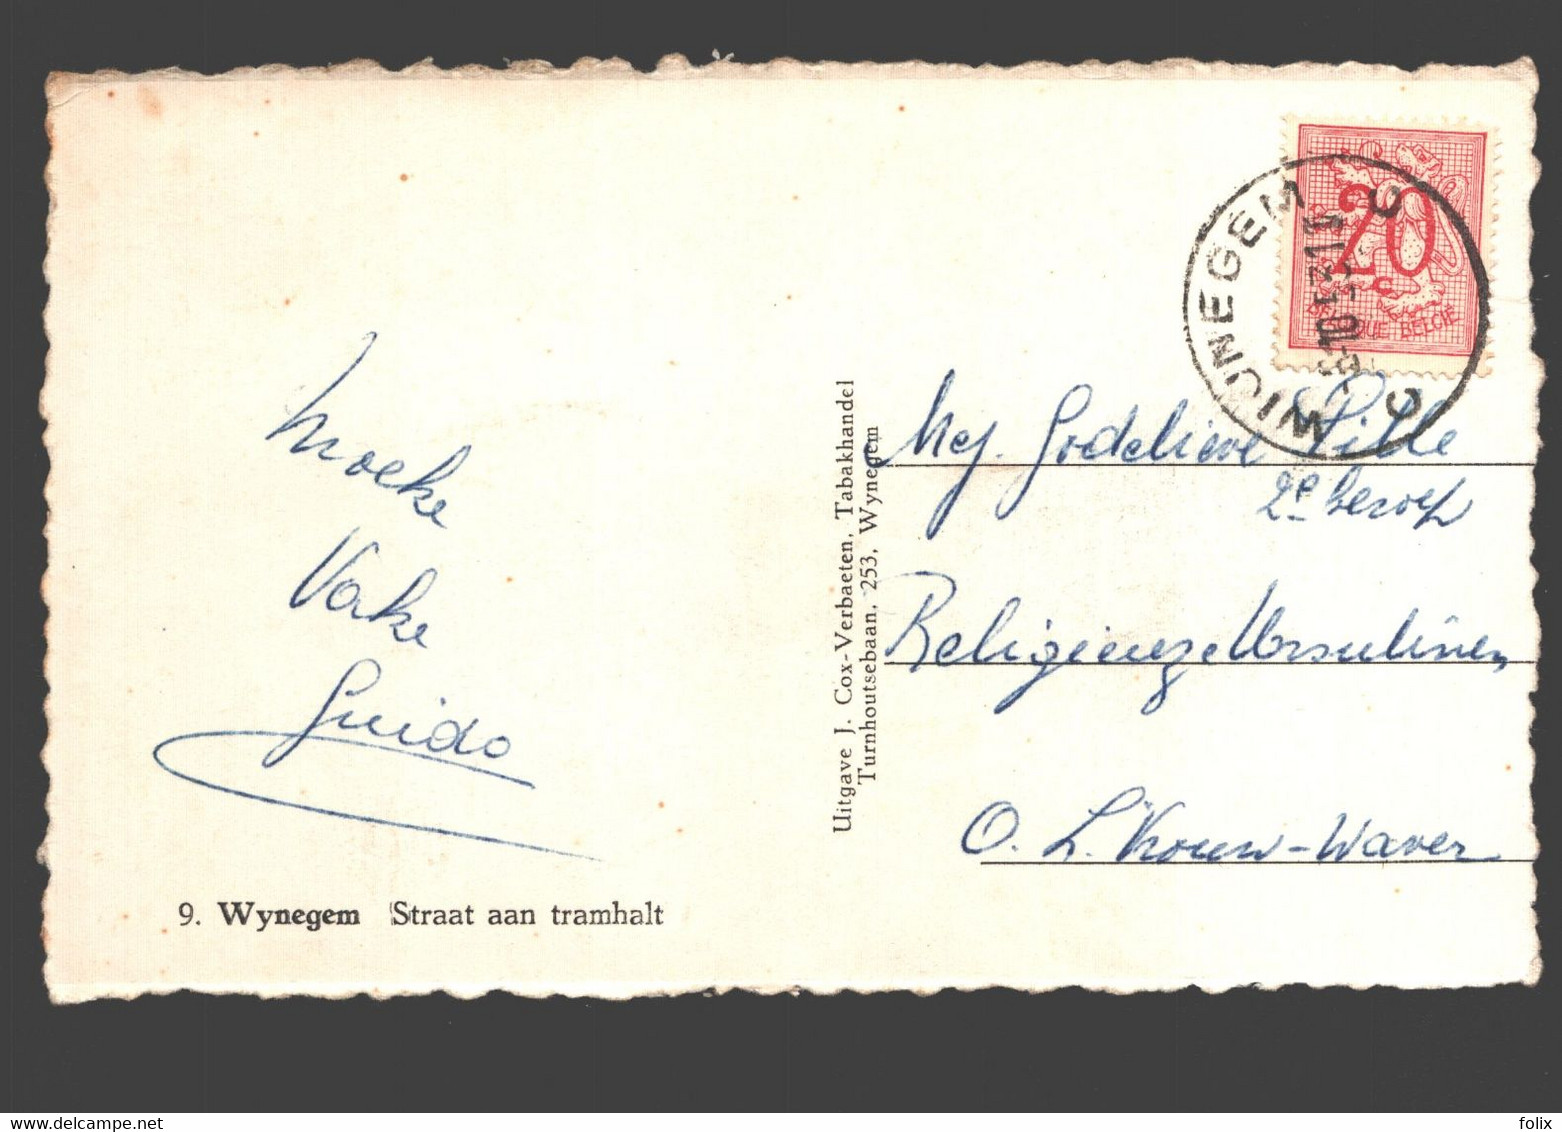 Moeke
Vake
Guido
9. Wynegem Straat aan tramhalt
Uitgave J. Cox-Verbaeten, Tabakhandel
Turnhoutsebaan, 253, Wynegem
WIJNEGEM
C C
20
c
BELGIQUE BELGIË
Mej. Godelieve Pille
2e beroep
Religieuze Ursulinen
O. L. Vrouw-Waver
folix